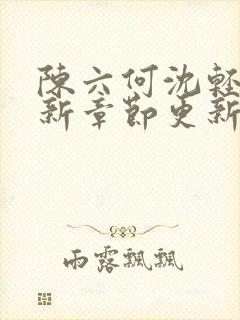 陳六何沈輕
新章節更新
雨露飄飄